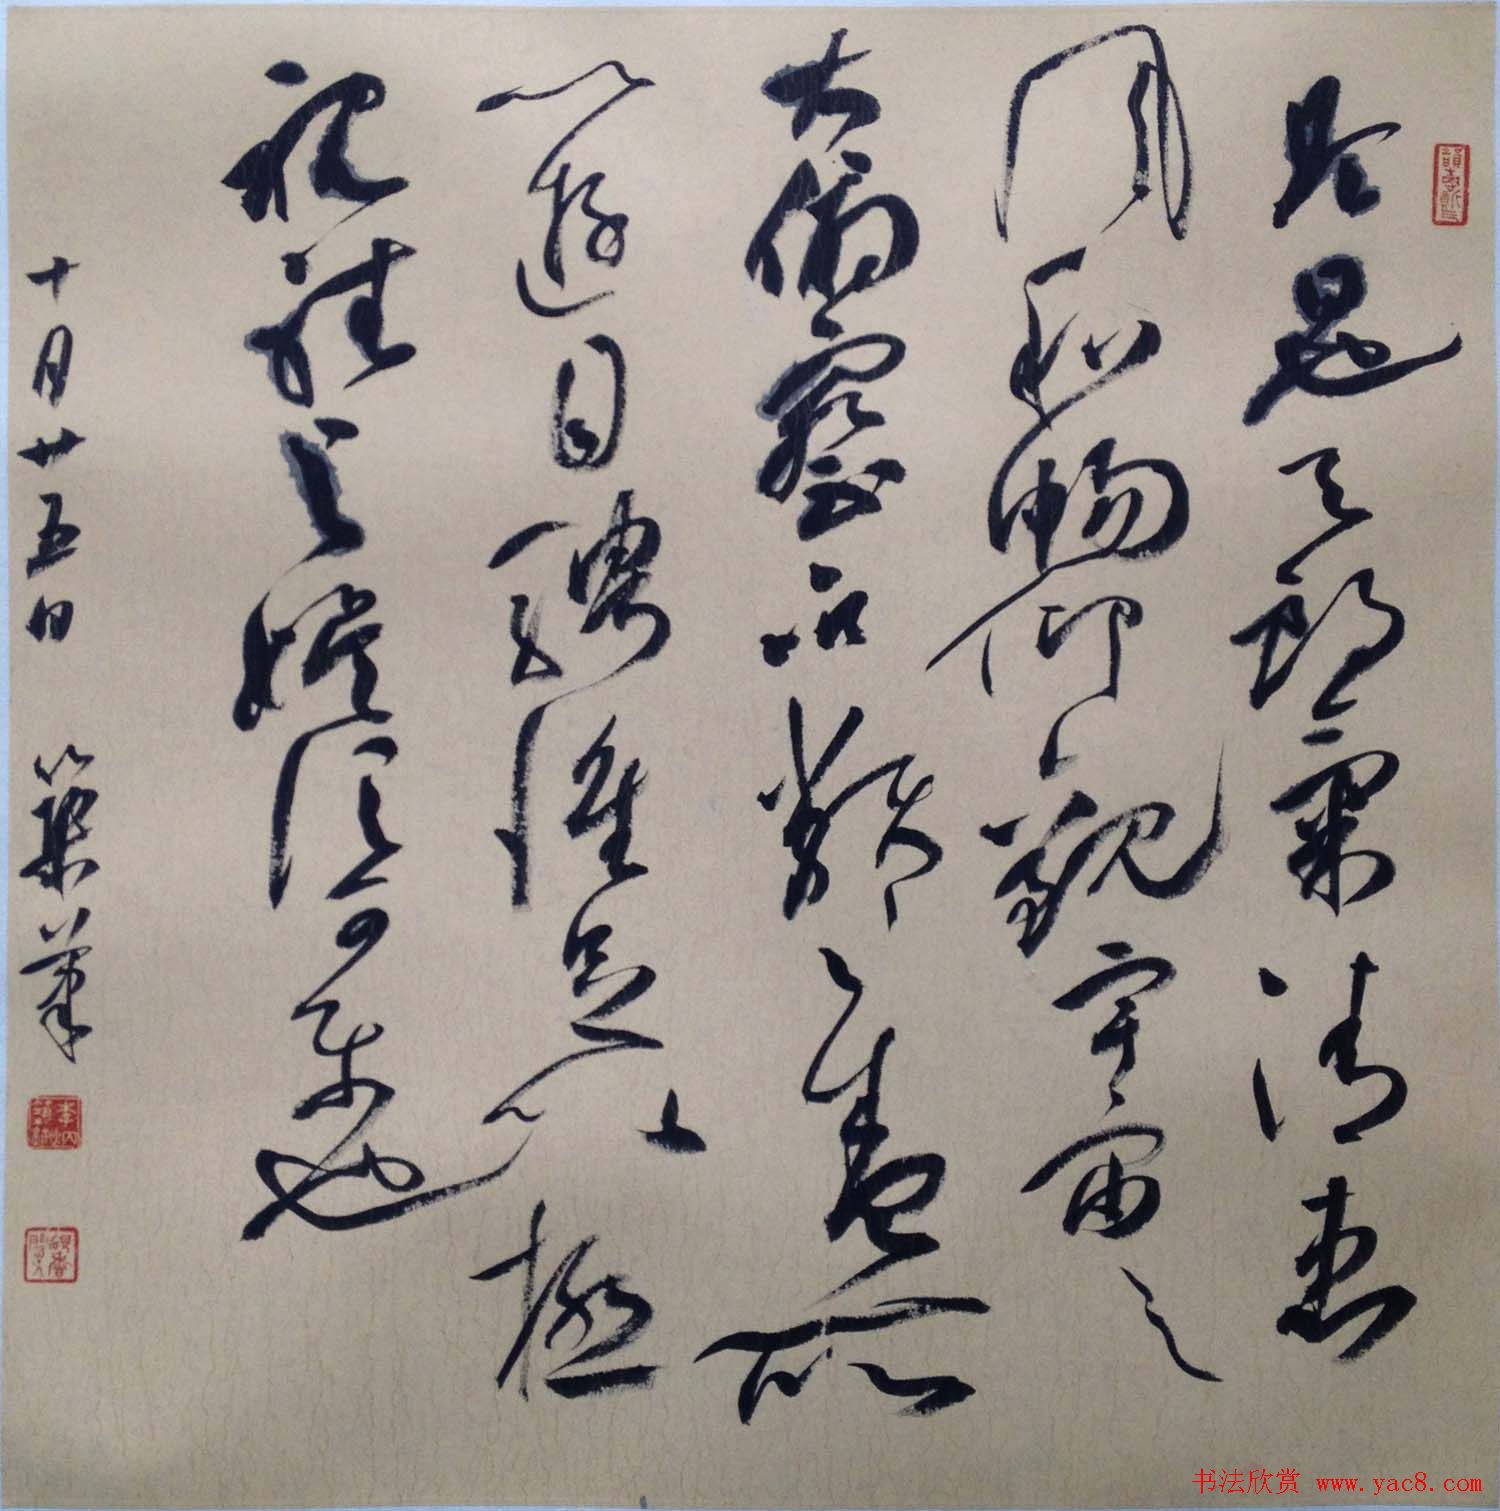 是日也天朗氣清惠
風和暢仰觀宇宙之
大俯察品類之盛所
以遊目騁懷足以極
視聽之娛信可樂也
十月廿五日
书法欣赏 www.yac8.com